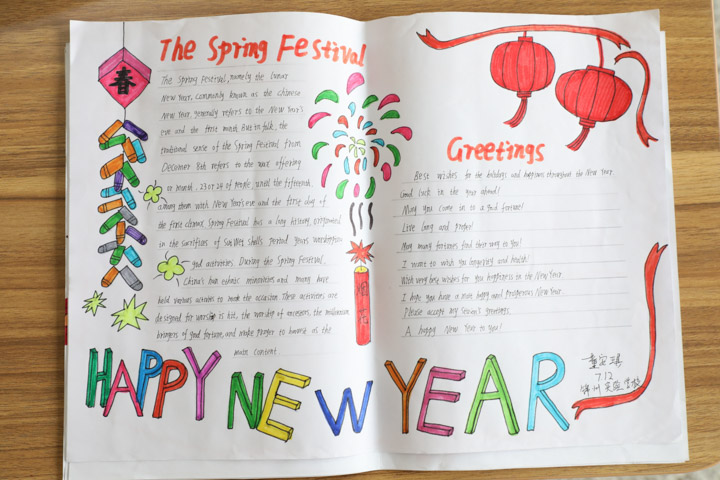 The Spring Festival
春
The Spring Festival, namely the lunar
New Year, commonly known as the Chinese
New Year, generally refers to the New Year's
eve and the first month. But in folk, the
traditional sense of the Spring Festival from
8th refers to the wax offering
or month, 23 or 24 of people, until the fifteenth,
among them with New Year's eve and the first day of
the first climax. Spring Festival has a long history, originated
in the sacrifices of shells period years
god activities. During the Spring Festival,
China's han ethnic minorities and many have
held various activities to mark the occasion. These activities are
designed for worship is kit, the worship of ancestors, the
bringers of good fortune, and make prayer to harvest as the
main content.
Greetings
Best wishes for the holidays and happiness throughout the New Year.
Good luck in the year ahead!
May you come in to a good fortune!
Live long and proper!
May many fortunes find their way to you!
I want to wish you longevity and health!
With very best wishes for you happiness in the New Year.
I hope you have a most happy and prosperous New Year.
Please accept my season's greetings.
A happy New Year to you!
HAPPY NEW YEAR
712